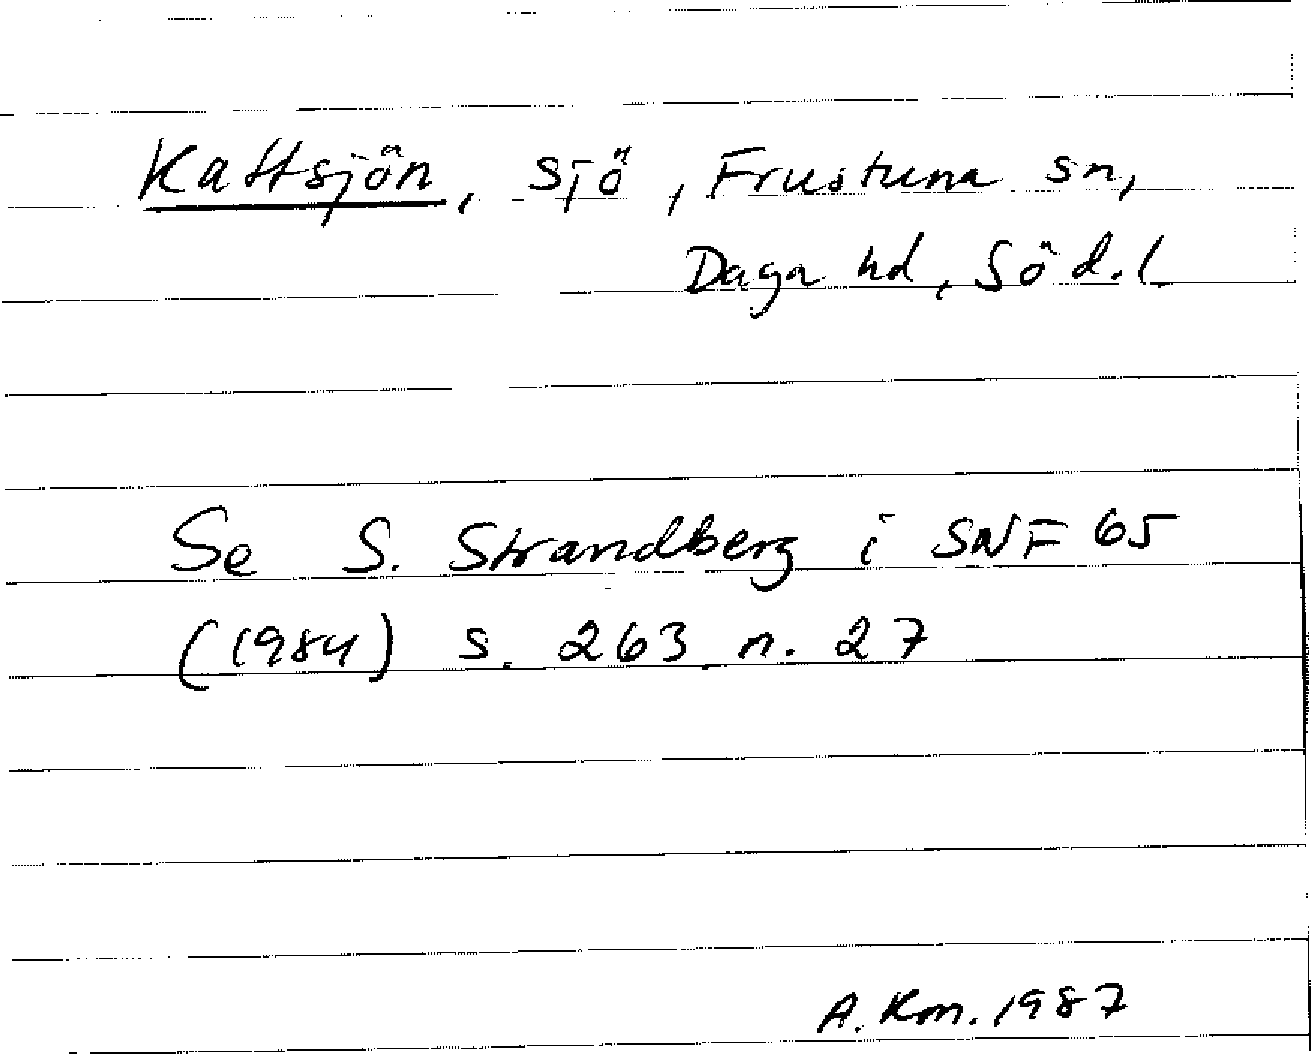 Kattsjön, sjö, Frustuna sn,
Daga hd, Söd.l.
Se S. Strandberg i SNF 65
(1984) s. 263 n. 27
A. Rm. 1987